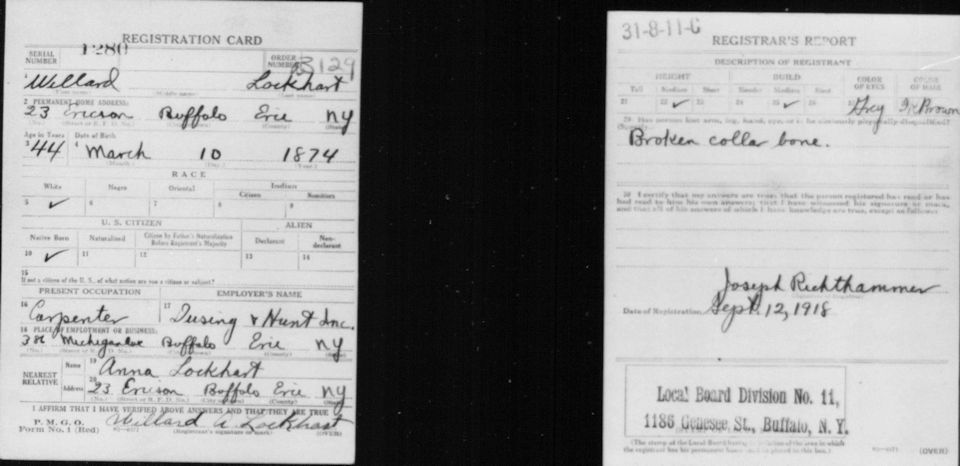 REGISTRATION CARD
SERIAL NUMBER 1280 ORDER NUMBER 3129
1 Willard Lockhart
(First name) (Middle name) (Last name)
2 PERMANENT HOME ADDRESS:
23 Ericson Buffalo Erie NY
(No.) (Street or R. F. D. No.) (City or town) (County) (State)
Age in Years Date of Birth
3 44 4 March 10 1874
(Month.) (Day.) (Year.)
RACE
White Negro Oriental Indian
Citizen Noncitizen
5 ✓ 6 7 8 9
U. S. CITIZEN ALIEN
Native Born Naturalized Citizen by Father's Naturalization Before Registrant's Majority Declarant Non-declarant
10 ✓ 11 12 13 14
15
If not a citizen of the U. S., of what nation are you a citizen or subject?
PRESENT OCCUPATION EMPLOYER'S NAME
16 Carpenter 17 Dusing & Hunt Inc.
18 PLACE OF EMPLOYMENT OR BUSINESS:
Michigan Ave Buffalo Erie NY
(No.) (Street or R. F. D. No.) (City or town) (County) (State)
NEAREST RELATIVE Name 19 Anna Lockhart
Address 20 23 Ericson Buffalo Erie NY
(No.) (Street or R. F. D. No.) (City or town) (County) (State)
I AFFIRM THAT I HAVE VERIFIED ABOVE ANSWERS AND THAT THEY ARE TRUE
P. M. G. O.
Form No. 1 (Red) Willard A Lockhart
(Registrant's signature or mark) (OVER)
31-8-11-C
REGISTRAR'S REPORT
DESCRIPTION OF REGISTRANT
HEIGHT BUILD COLOR OF EYES COLOR OF HAIR
Tall Medium Short Slender Medium Stout
21 22 ✓ 23 24 25 ✓ 26 27 Grey Brown
29 Has person lost arm, leg, hand, eye, or is he obviously physically disqualified?
(Specify.)
Broken collar bone.
30 I certify that my answers are true; that the person registered has read or has
had read to him his own answers; that I have witnessed his signature or mark,
and that all of his answers of which I have knowledge are true, except as follows:
Joseph Richthammer
Date of Registration Sept. 12, 1918
Local Board Division No. 11,
1186 Genesee St., Buffalo, N. Y.
(The stamp of the Local Board having jurisdiction of the area in which
the registrant has his permanent home shall be placed in this box.)
(OVER)